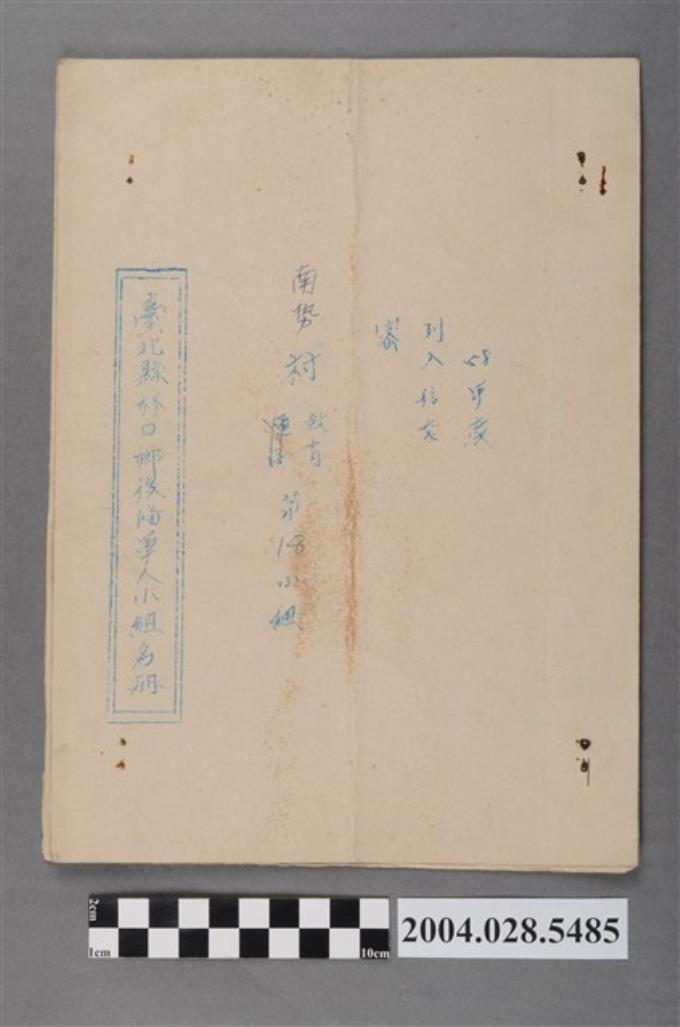 58年度
列入移交
密
南勢村
教育
第18小組
臺北縣林口鄉後備軍人小組名冊
2cm
1cm
10cm
2004.028.5485